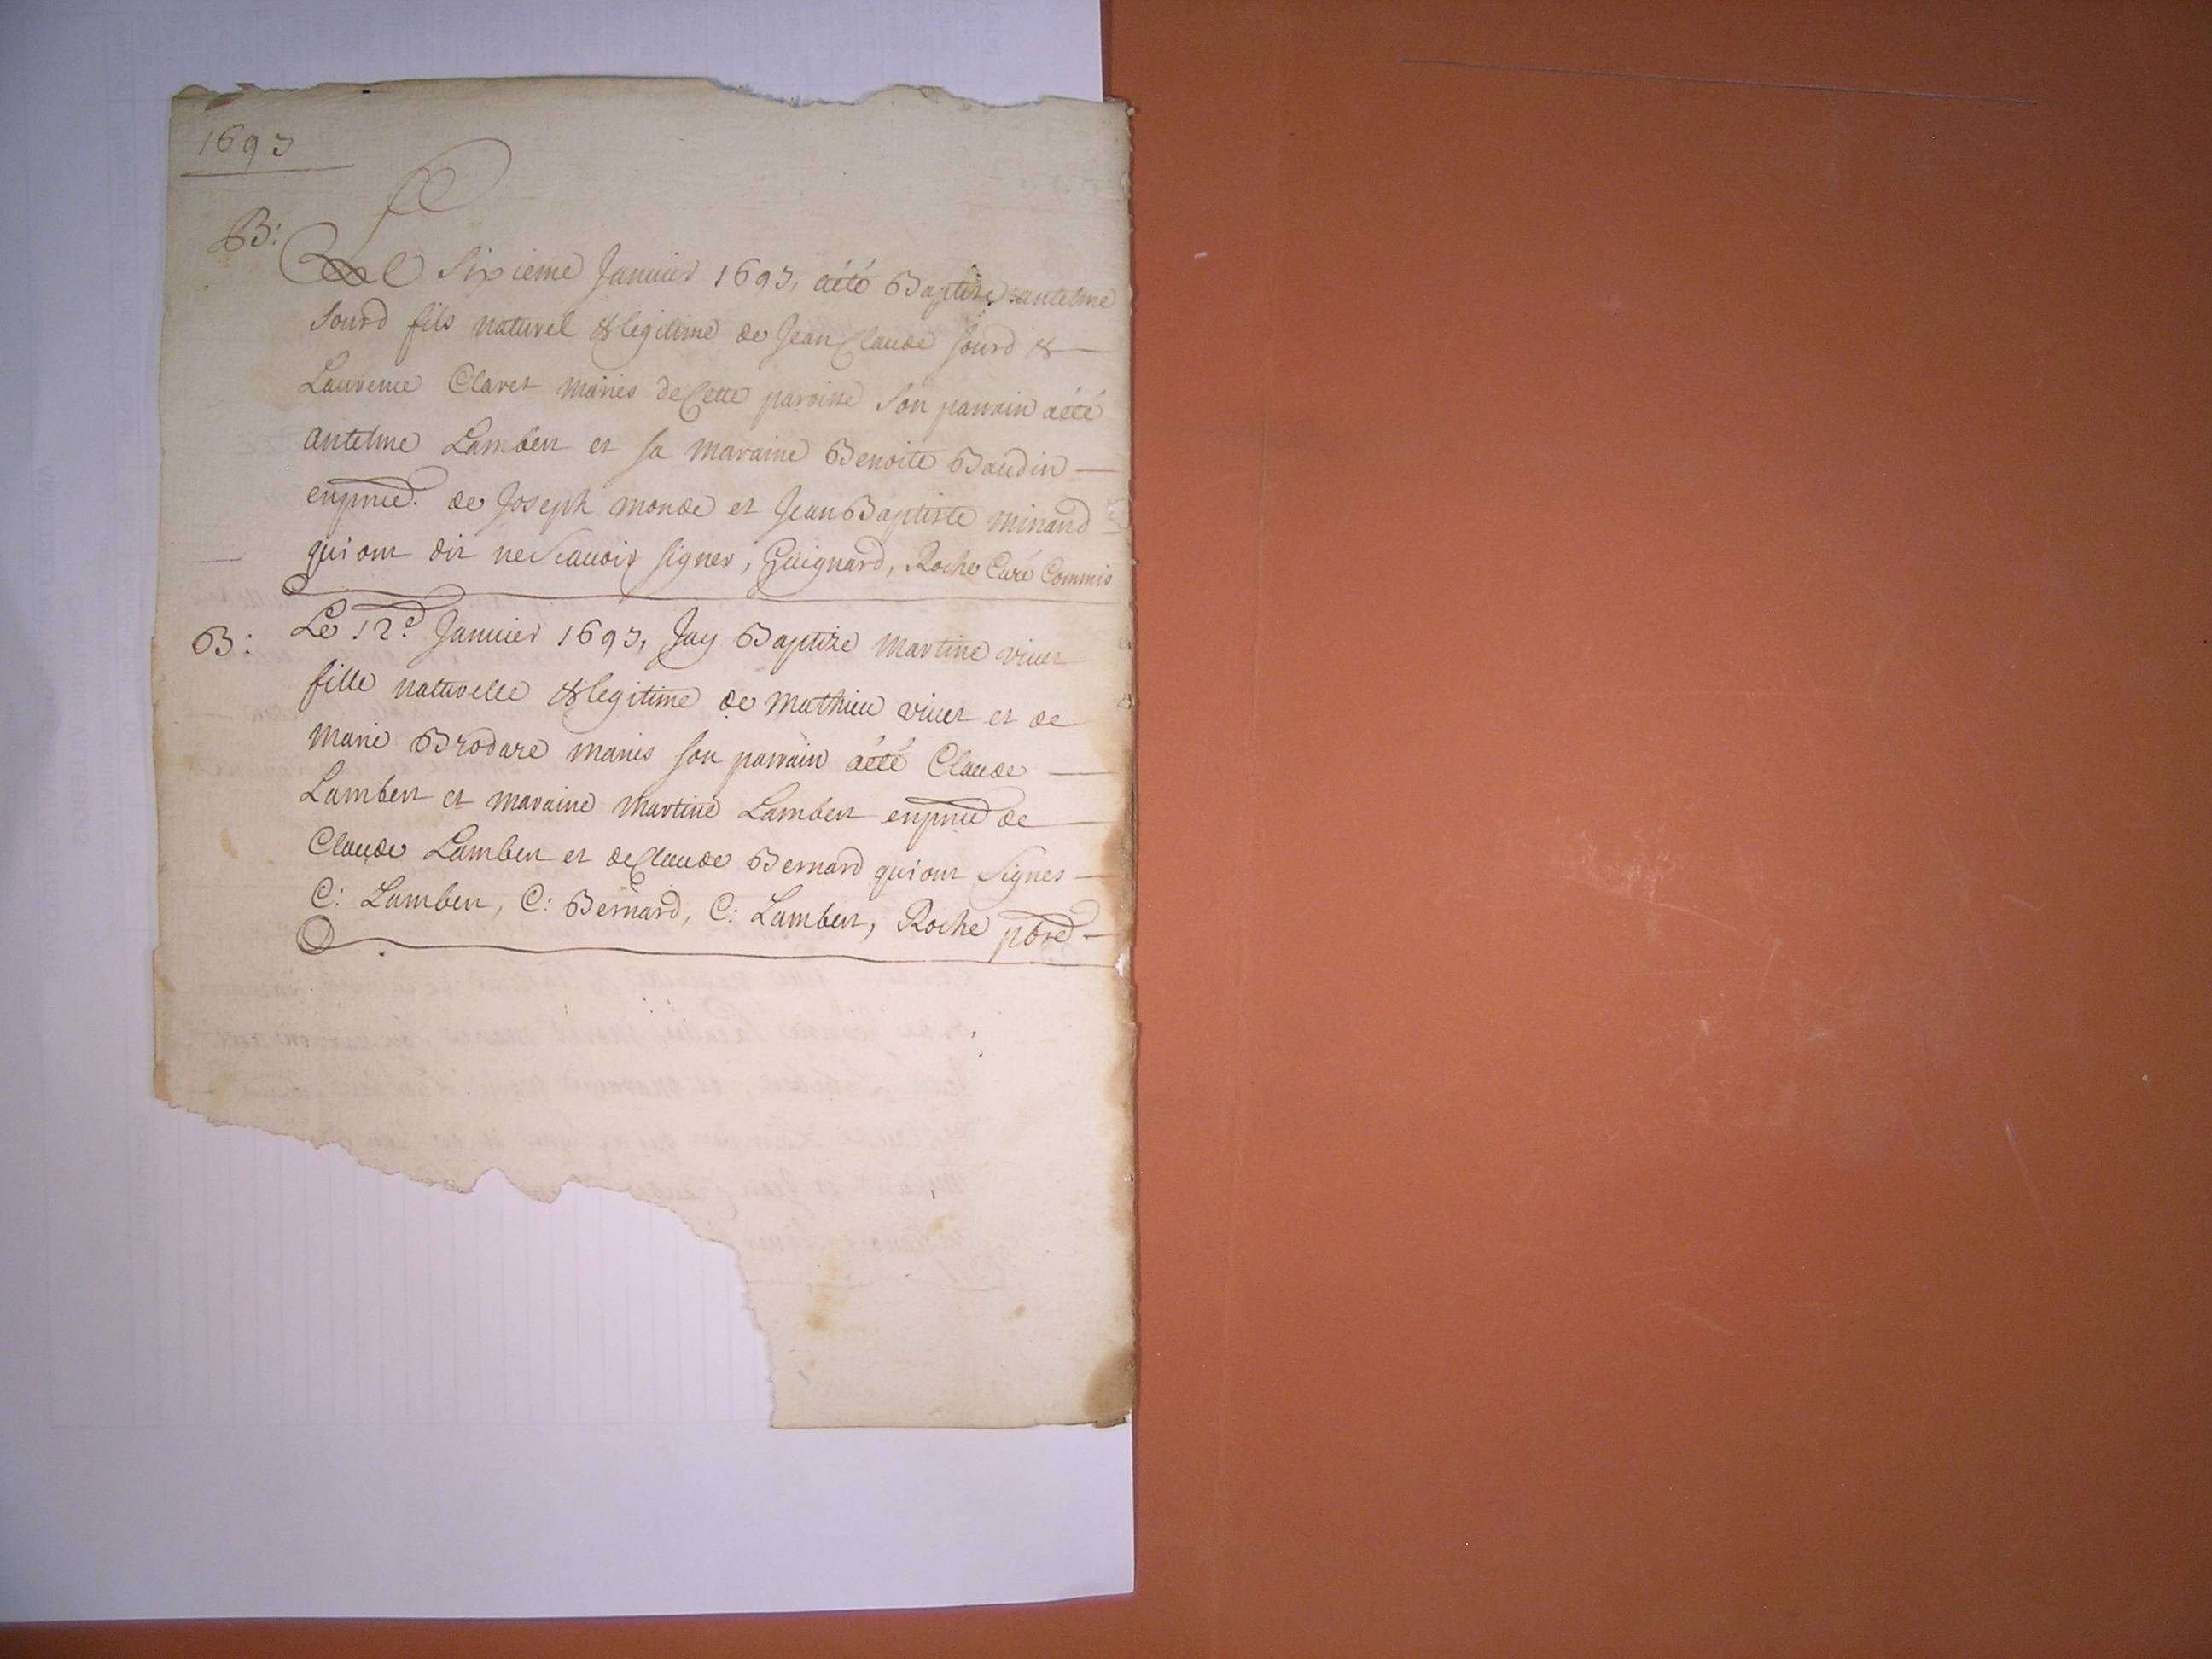 1693
B:
Le Sixieme Janvier 1693, aété Baptizé antelme
Sourd fils naturel & legitime de Jean Claude Sourd &
Laurence Claret mariés de Cette paroisse Son parrain aété
antelme Lambert et sa maraine Benoite Baudin
enpnce. de Joseph monde et Jean Baptiste minand
qui ont dit ne Scauoir signer, Guignard, Roche Curé Commis
B:
Le 12e. Janvier 1693, Jay Baptizé martine viuet
fille naturelle & legitime de mathieu viuet et de
marie Brodare mariés son parrain aété Claude
Lambert et maraine martine Lambert enpnce de
Claude Lambert et de Claude Bernard qui ont Signés
C: Lambert, C: Bernard, C: Lambert, Roche pbre